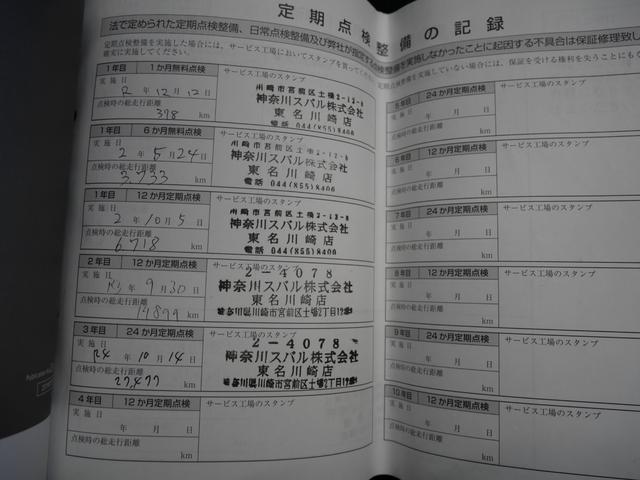 定期点検整備の記録
法で定められた定期点検整備、日常点検整備及び弊社が指定する点検整備を実施しなかったことに起因する不具合は保証修理致し
定期点検整備を実施した場合には、サービス工場においてスタンプを
確実に実施
1年目 1か月無料点検
サービス工場のスタンプ
実施日
年12月12日
点検時の総走行距離
378 km
川崎市宮前区土橋2-12-8
神奈川スバル株式会社
東名川崎店
電話 044(855)8400
1年目 6か月無料点検
サービス工場のスタンプ
実施日
2年5月24日
点検時の総走行距離
3,733 km
神奈川スバル株式会社
東名川崎店
電話 044(855)8400
1年目 12か月定期点検
サービス工場のスタンプ
実施日
2年10月5日
点検時の総走行距離
6718 km
川崎市宮前区土橋2-12-8
神奈川スバル株式会社
東名川崎店
電話 044(855)8400
2年目 12か月定期点検
サービス工場のスタンプ
実施日
R3年9月30日
点検時の総走行距離
km
2-4078
神奈川スバル株式会社
東名川崎店
川崎市宮前区土橋2丁目12番
3年目 24か月定期点検
サービス工場のスタンプ
実施日
R4年10月14日
点検時の総走行距離
27,477 km
2-4078
神奈川スバル株式会社
東名川崎店
神奈川県川崎市宮前区土橋2丁目12番
4年目 12か月定期点検
サービス工場のスタンプ
実施日
年 月 日
点検時の総走行距離
km
5年目 24か月定期点検
サービス工場のスタンプ
実施日
年 月 日
点検時の総走行距離
km
6年目 12か月定期点検
サービス工場のスタンプ
実施日
年 月 日
点検時の総走行距離
km
7年目 24か月定期点検
サービス工場のスタンプ
実施日
年 月 日
点検時の総走行距離
km
8年目 12か月定期点検
サービス工場のスタンプ
実施日
年 月 日
点検時の総走行距離
km
9年目 24か月定期点検
サービス工場のスタンプ
実施日
年 月 日
点検時の総走行距離
km
10年目 12か月定期点検
サービス工場のスタンプ
実施日
年 月 日
点検時の総走行距離
km